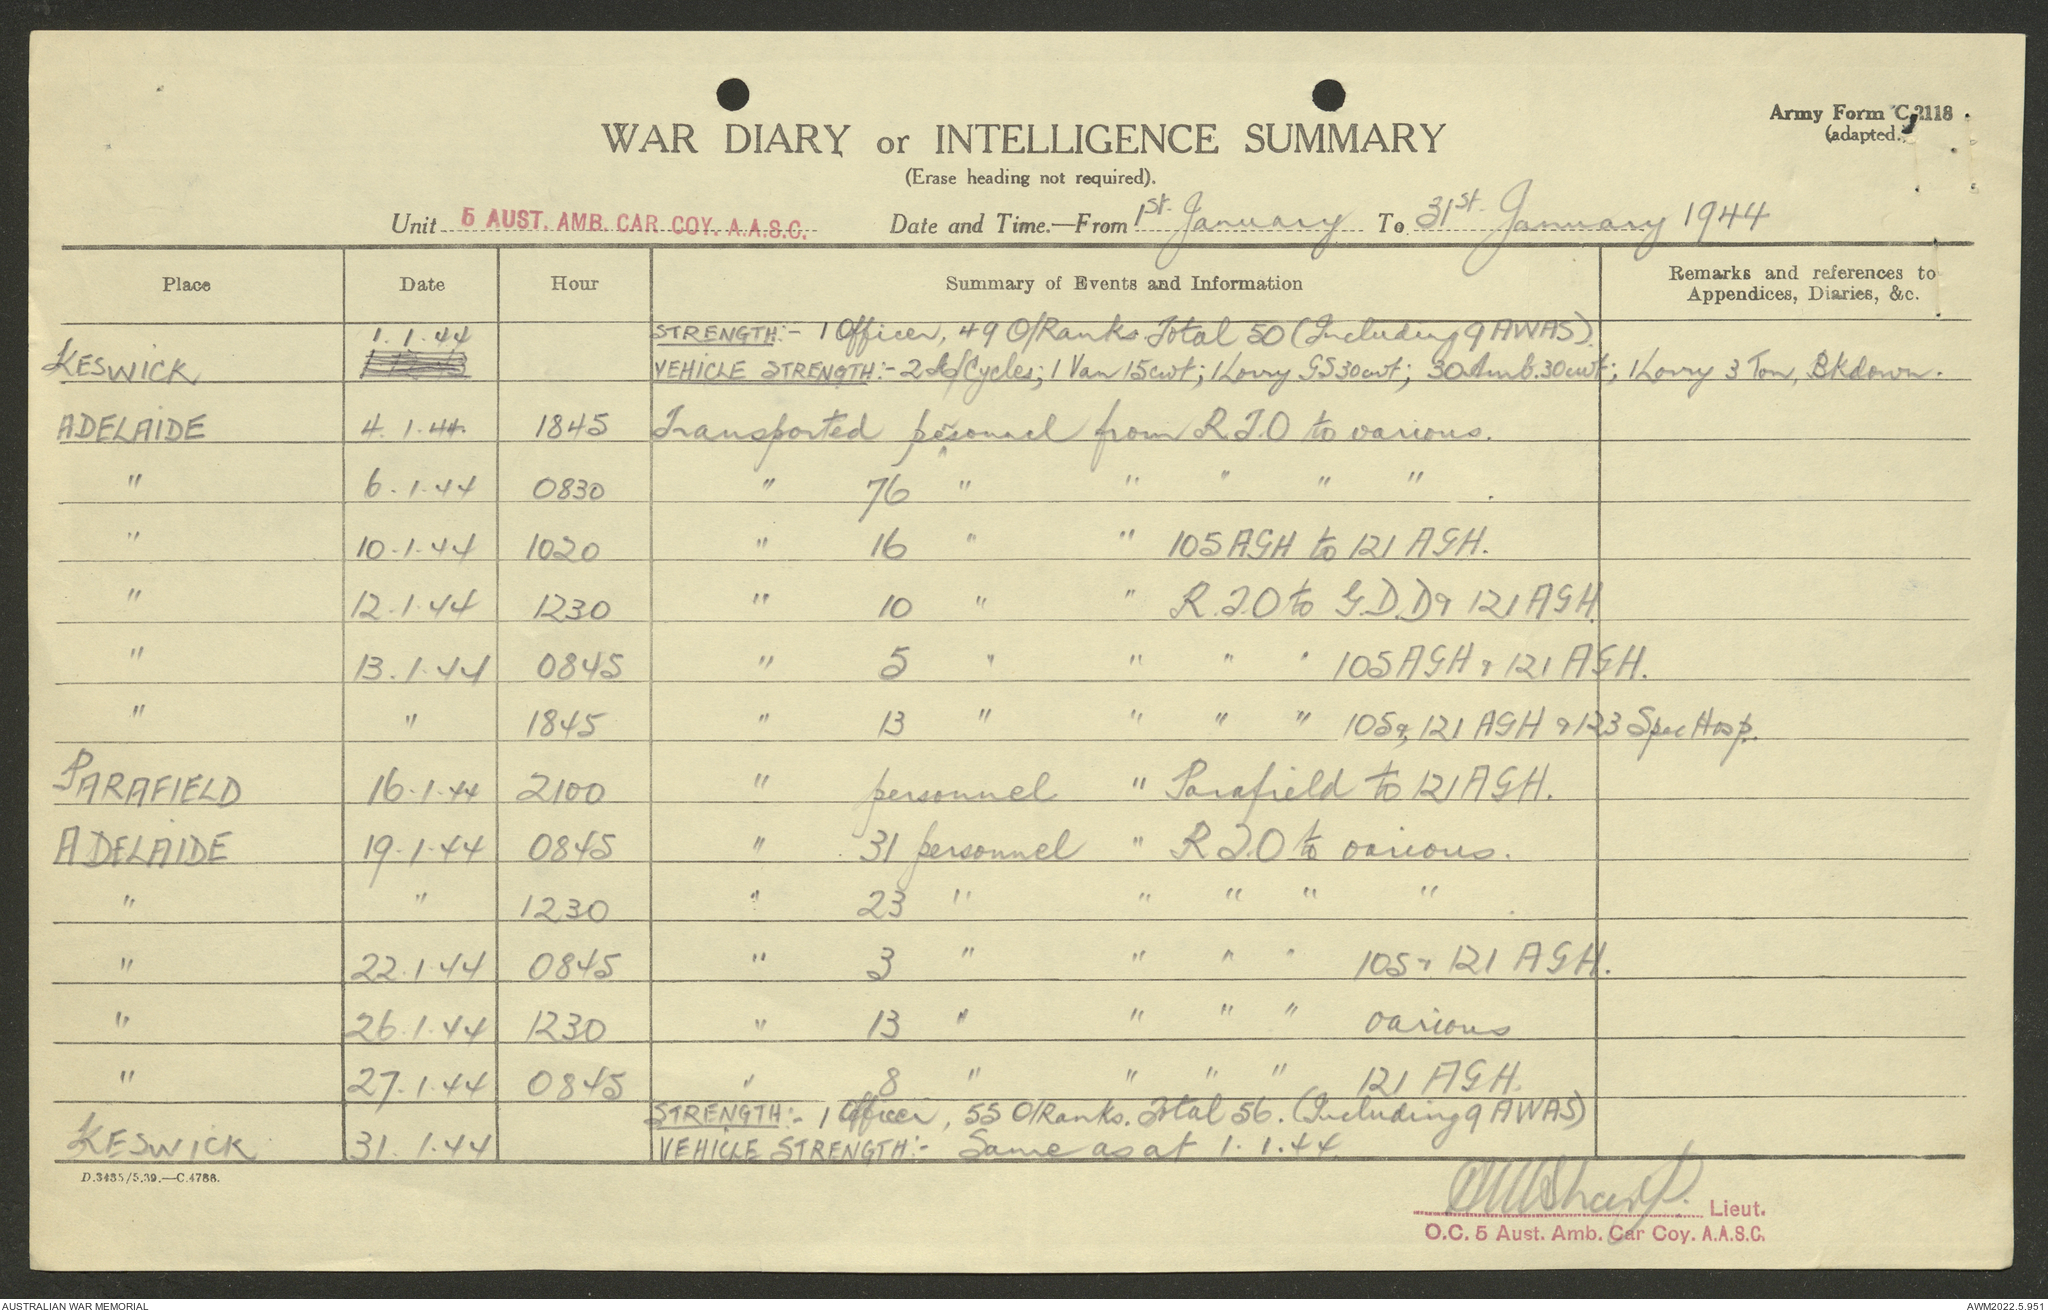 Army Form C.2118
(adapted.)
WAR DIARY or INTELLIGENCE SUMMARY
(Erase heading not required).
Unit 5 AUST. AMB. CAR COY. A.A.S.C. Date and Time.—From 1st January To 31st January 1944
Place Date Hour Summary of Events and Information Remarks and references to Appendices, Diaries, &c.
KESWICK 1.1.44 STRENGTH:- 1 Officer, 49 O/Ranks. Total 50 (Including 9 AWAS)
VEHICLE STRENGTH:- 2 Cycles; 1 Van 15cwt; 1 Lorry GS 30cwt; 30 Amb. 30cwt; 1 Lorry 3 Ton, Bkdown.
ADELAIDE 4.1.44. 1845 Transported pesonnel from R.T.O to various.
" 6.1.44 0830 " 76 " " " " " .
" 10.1.44 1020 " 16 " " 105 AGH to 121 AGH.
" 12.1.44 1230 " 10 " " R.T.O to G.D.D & 121 AGH.
" 13.1.44 0845 " 5 " " " " 105 AGH & 121 AGH.
" " 1845 " 13 " " " " 105 & 121 AGH & 123 Spec Hosp.
PARAFIELD 16.1.44 2100 " personnel " Parafield to 121 AGH.
ADELAIDE 19.1.44 0845 " 31 personnel " R.T.O to various.
" " 1230 " 23 " " " " " .
" 22.1.44 0845 " 3 " " " " 105 & 121 AGH.
" 26.1.44 1230 " 13 " " " " various
" 27.1.44 0845 " 8 " " " " 121 AGH.
STRENGTH:- 1 Officer, 55 O/Ranks. Total 56. (Including 9 AWAS)
KESWICK 31.1.44 VEHICLE STRENGTH:- Same as at 1.1.44
D.3435/5.39.—C.4788.
Sharp. Lieut.
O.C. 5 Aust. Amb. Car Coy. A.A.S.C.
AUSTRALIAN WAR MEMORIAL AWM2022.5.951